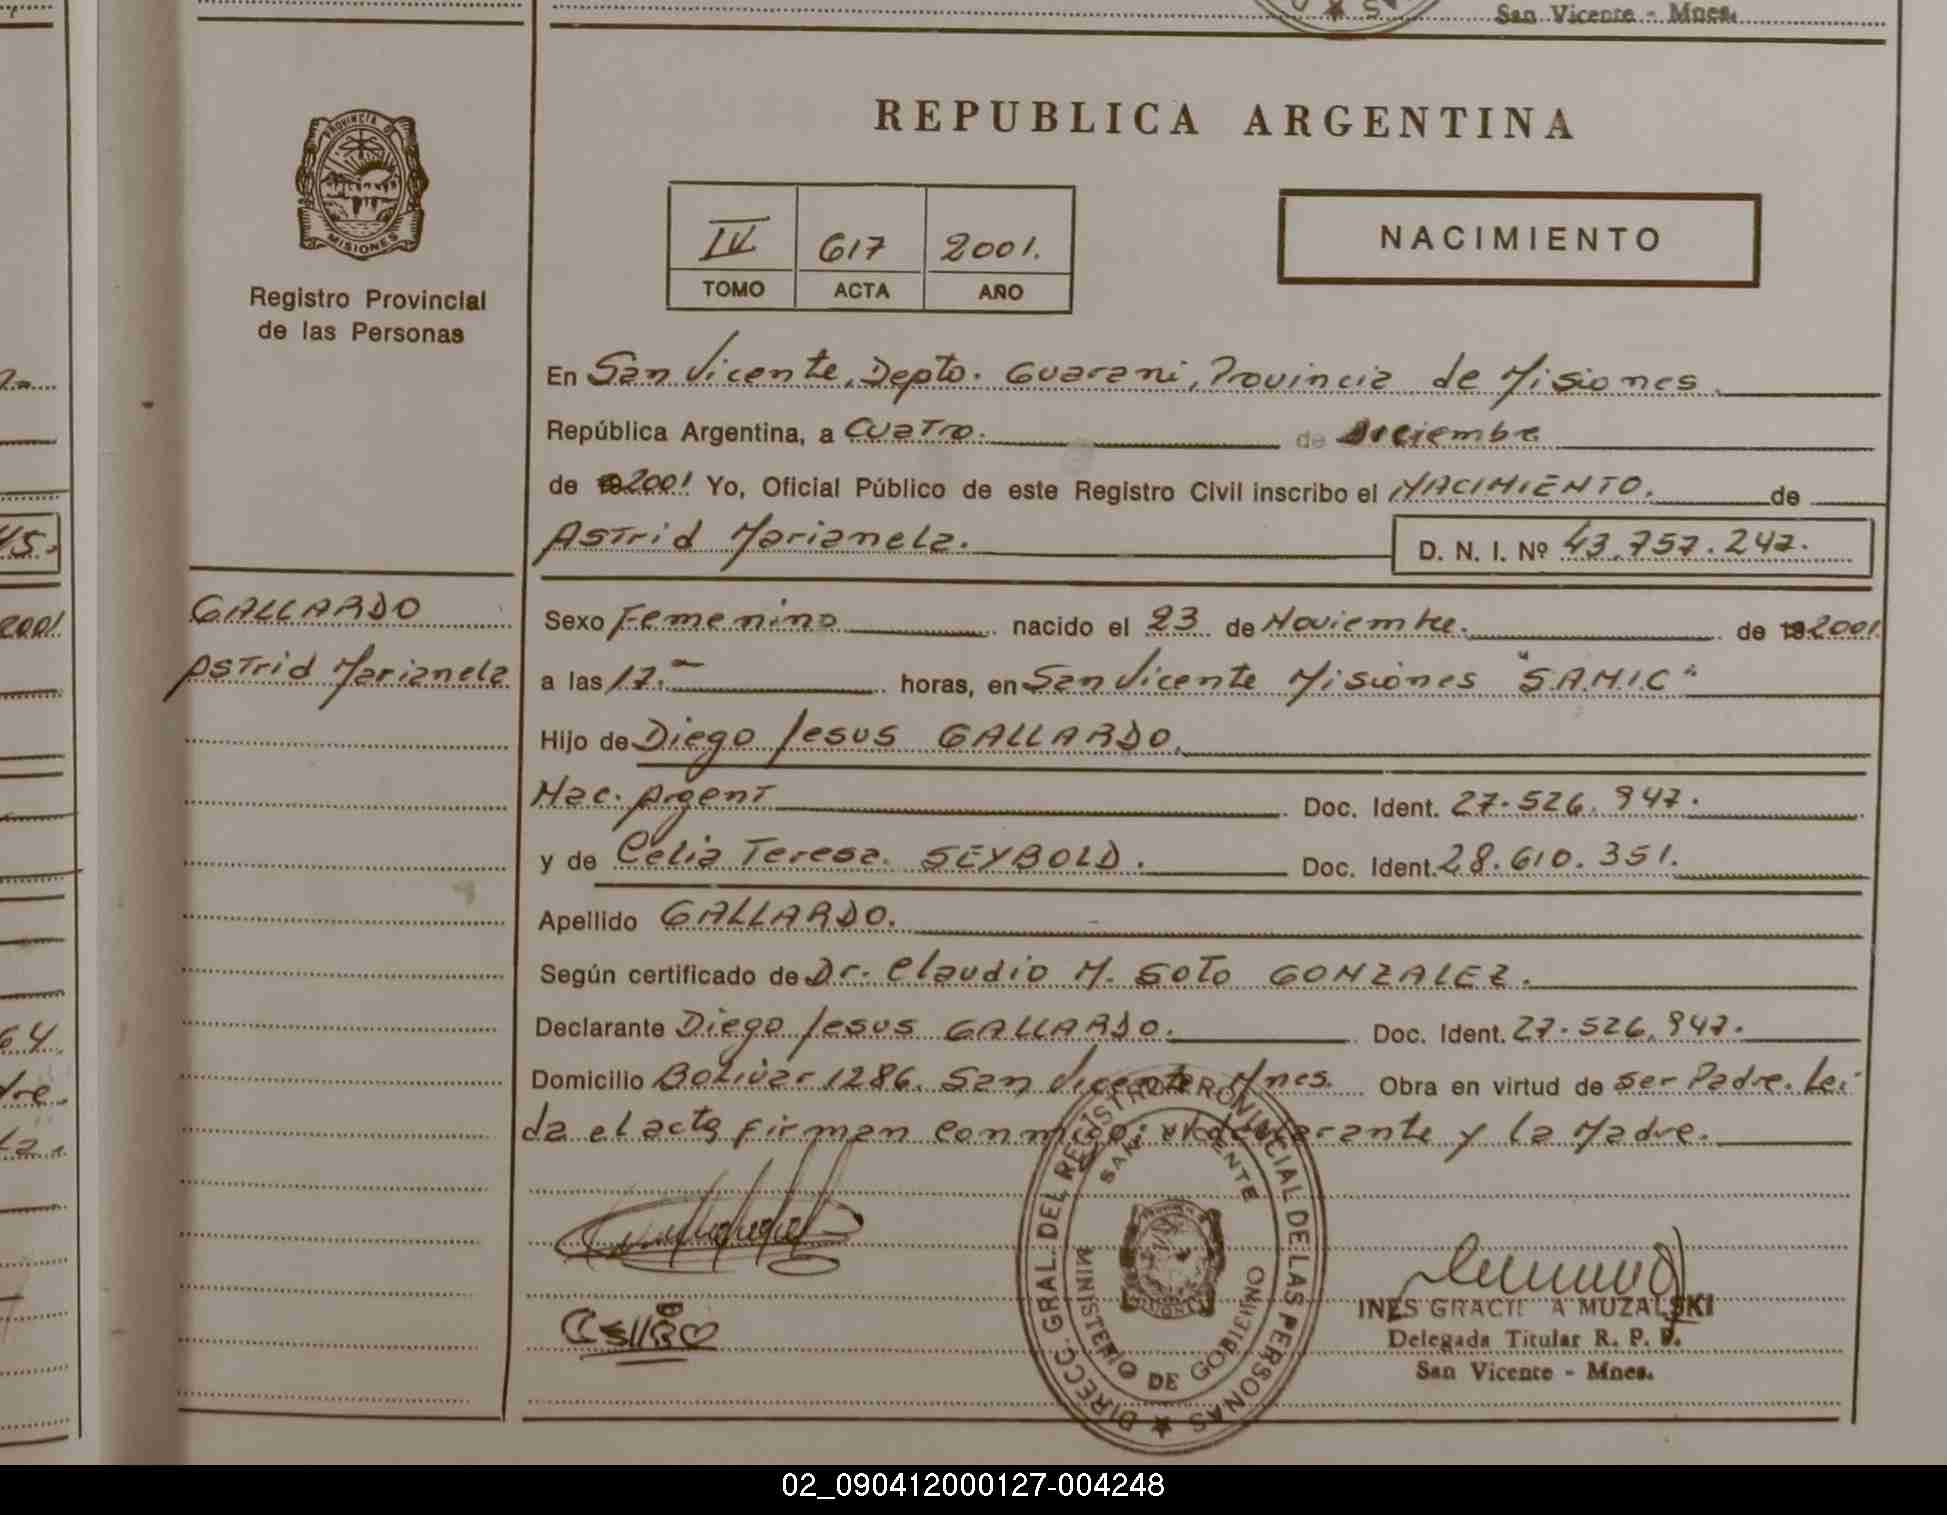 San Vicente - Mnes.
REPUBLICA ARGENTINA
PROVINCIA D
MISIONES
Registro Provincial
de las Personas
IV 617 2001.
TOMO ACTA AÑO
NACIMIENTO
En San Vicente, Depto. Guarani, Provincia de Misiones
República Argentina, a Cuatro. de Diciembre
de 2001 Yo, Oficial Público de este Registro Civil inscribo el NACIMIENTO. de
Astrid Marianela.
D. N. I. Nº 43.757.247.
GALLARDO
Astrid Marianela
Sexo Femenino nacido el 23 de Noviembre. de 2001
a las 17.- horas, en San Vicente Misiones "S.A.M.I.C"
Hijo de Diego Jesus GALLARDO.
Nac. Argent Doc. Ident. 27.526.947.
y de Celia Teresa. SEYBOLD. Doc. Ident. 28.610.351.
Apellido GALLARDO.
Según certificado de Dr. Claudio M. SOTO GONZALEZ.
Declarante Diego Jesus GALLARDO. Doc. Ident. 27.526.947.
Domicilio Bolivar 1286. San Vicente Mnes. Obra en virtud de ser Padre. Lei
da el acta firman conmigo: el declarante y la Madre.
DIRECC. GRAL. DEL REGISTRO PROVINCIAL DE LAS PERSONAS
SAN VICENTE
MINISTERIO DE GOBIERNO
INES GRACI A MUZALSKI
Delegada Titular R. P. P.
San Vicente - Mnes.
02_090412000127-004248